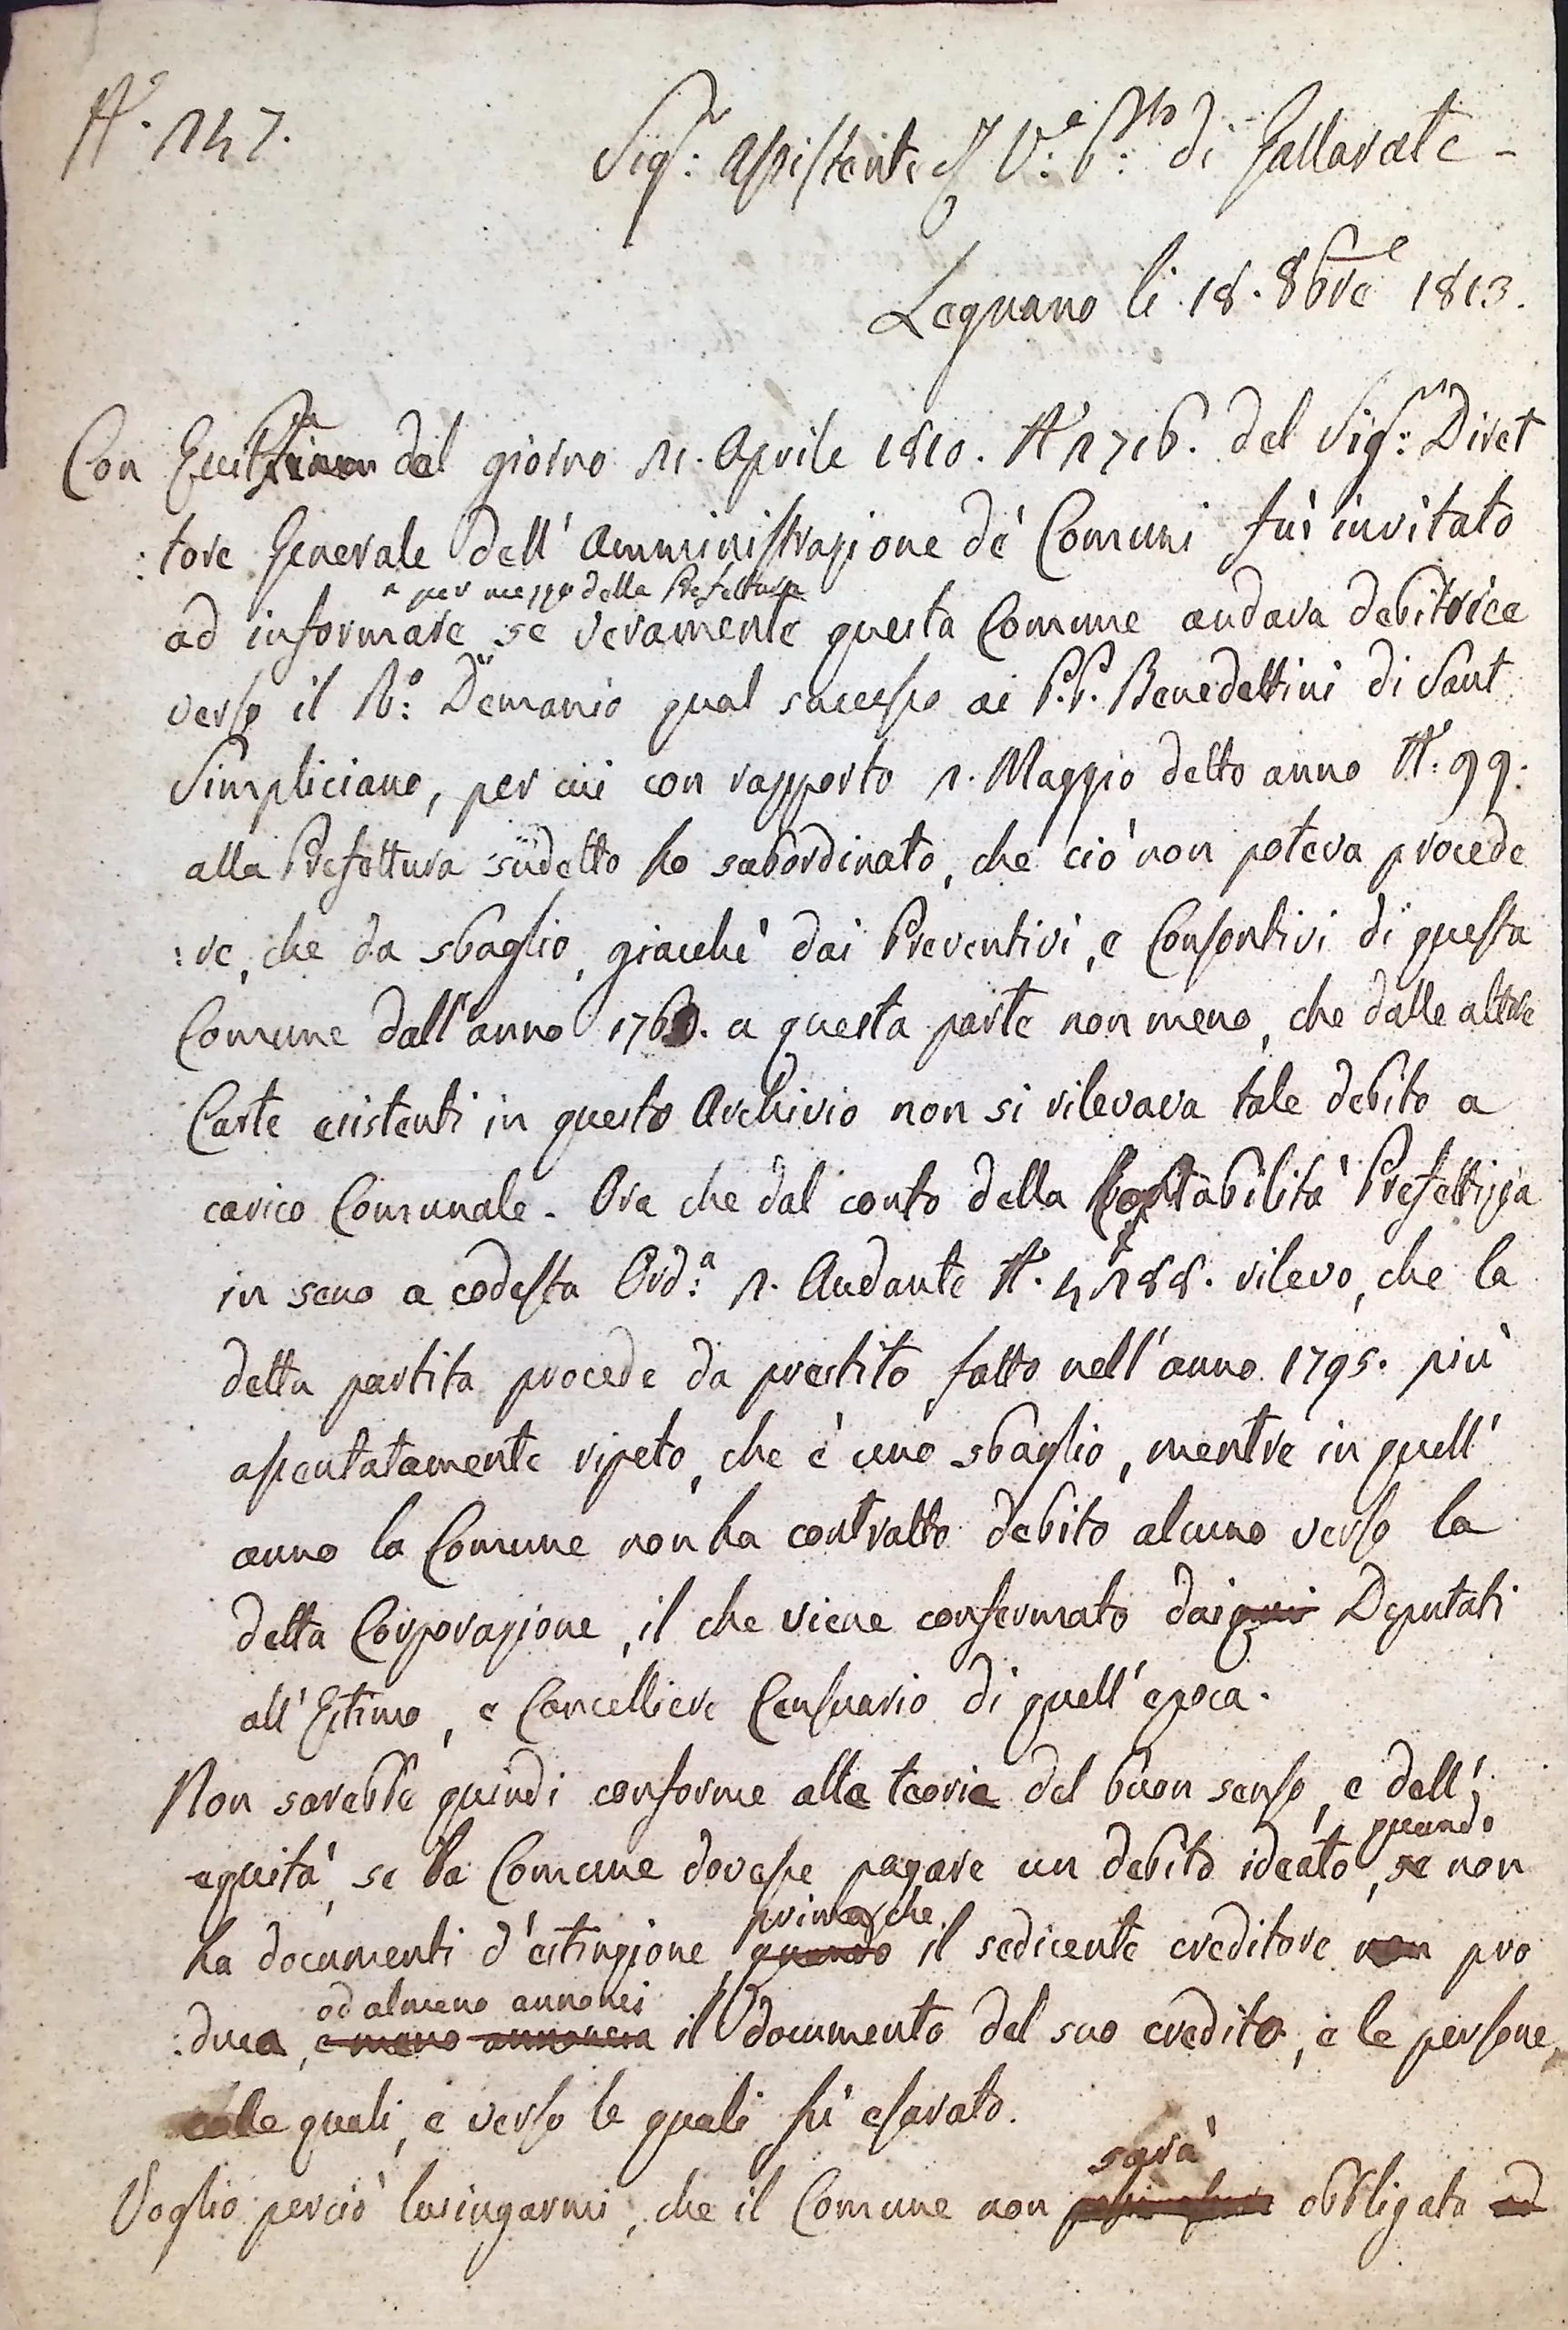 N.° 147.
Sig.r Assistente ff V.e P.tto di Gallarate -
Legnano li 18. 8bre 1813.
Con Eccit.ria del giorno 21. Aprile 1810. N.° 1716. del Sig.r Diret
:tore Generale dell' Amministrazione de' Comuni fui invitato
per mezzo della Prefettura
ad informare se veramente questa Comune andava debitrice
verso il R.° Demanio qual sucesso ai P.P. Benedettini di Sant
Simpliciano, per cui con rapporto 1. Maggio detto anno N.° 99.
alla Prefettura sudetto ho subordinato, che ciò non poteva procede
:re, che da sbaglio, giacchè dai Preventivi, e Consontivi di questa
Comune dall'anno 1760. a questa parte non meno, che dalle altre
Carte esistenti in questo Archivio non si rilevava tale debito a
carico Comunale. Ora che dal conto della Contabilità Prefettizia
in seno a codesta Ord.a 1. Andante N.° 4188. rilevo, che la
detta partita procede da prestito fatto nell'anno 1795. più
asentatamente ripeto, che è uno sbaglio, mentre in quell'
anno la Comune non ha contratto debito alcuno verso la
detta Corporazione, il che viene confermato dai Deputati
all'Estimo, e Cancelliere Censuario di quell'epoca.
Non sarebbe quindi conforme alla teoria del buon senso, e dell'
quando
equità, se la Comune dovesse pagare un debito ideato, se non
prima che
ha documenti d'estinzione, quando il sedicente creditore non pro
od almeno annonci
:duca, e meno annoncia il documento del suo credito, e le persone,
colle quali, e verso le quali fù esarato.
sarà
Voglio perciò lusingarmi, che il Comune non obbligato ad